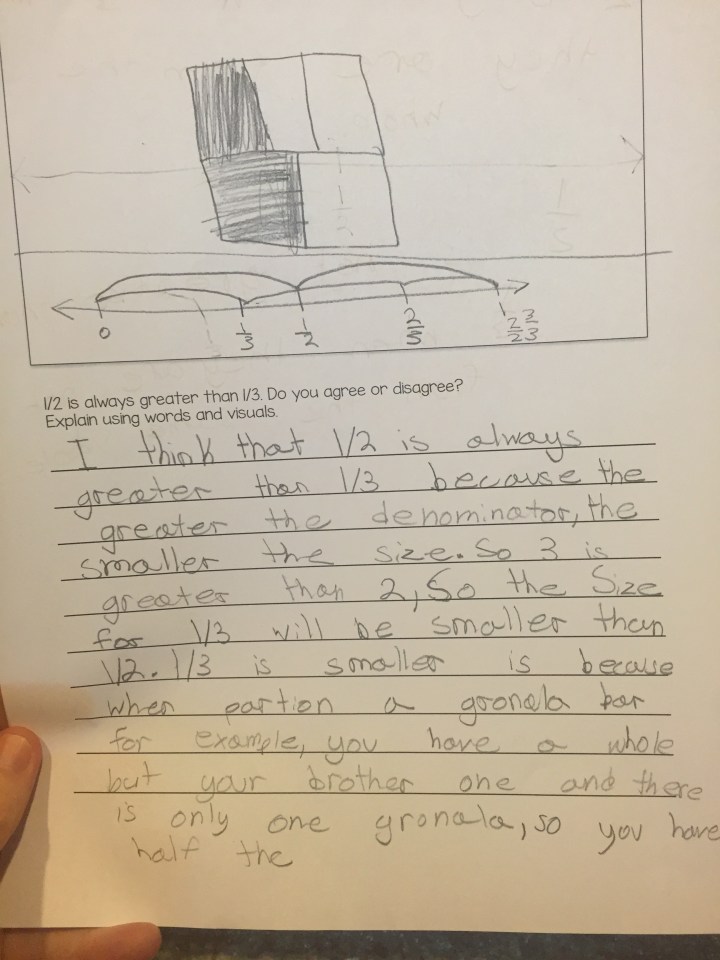 0
1/3
1/2
2/3
2/2 3/3
1/2 is always greater than 1/3. Do you agree or disagree?
Explain using words and visuals.
I think that 1/2 is always
greater than 1/3 because the
greater the denominator, the
smaller the size. So 3 is
greater than 2, So the Size
for 1/3 will be smaller than
1/2. 1/3 is smaller is because
when partion a gronola bar
for example, you have a whole
but your brother one and there
is only one gronala, so you have
half the